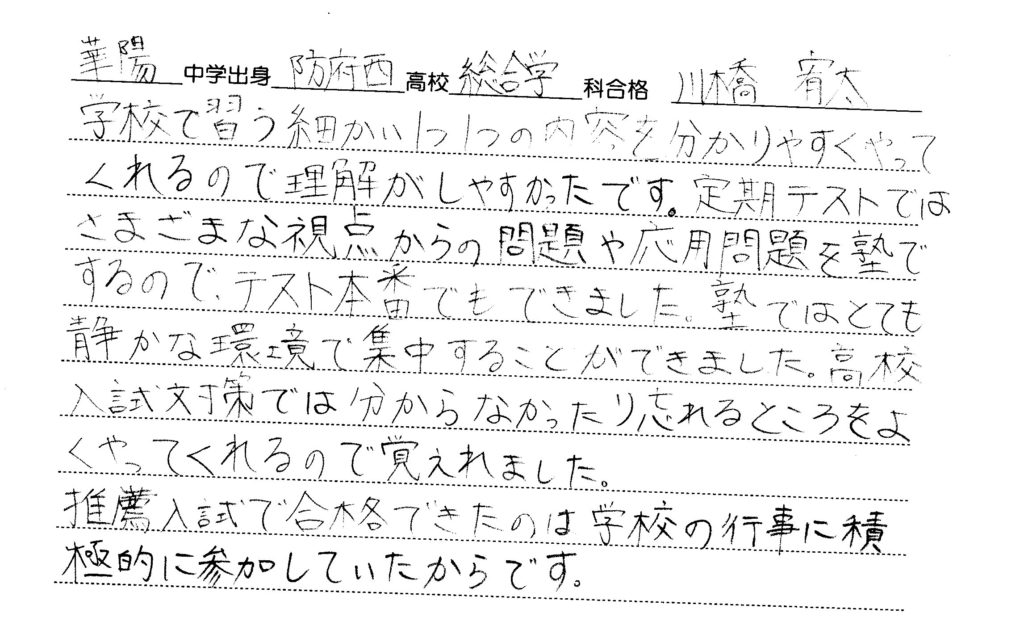 華陽中学出身 防府西高校総合学科合格 川橋 宥太
学校で習う細かい1つ1つの内容を分かりやすくやって
くれるので理解がしやすかったです。定期テストでは
さまざまな視点からの問題や応用問題を塾で
するので、テスト本番でもできました。塾ではとても
静かな環境で集中することができました。高校
入試対策では分からなかったり忘れるところをよ
くやってくれるので覚えれました。
推薦入試で合格できたのは学校の行事に積
極的に参加していたからです。